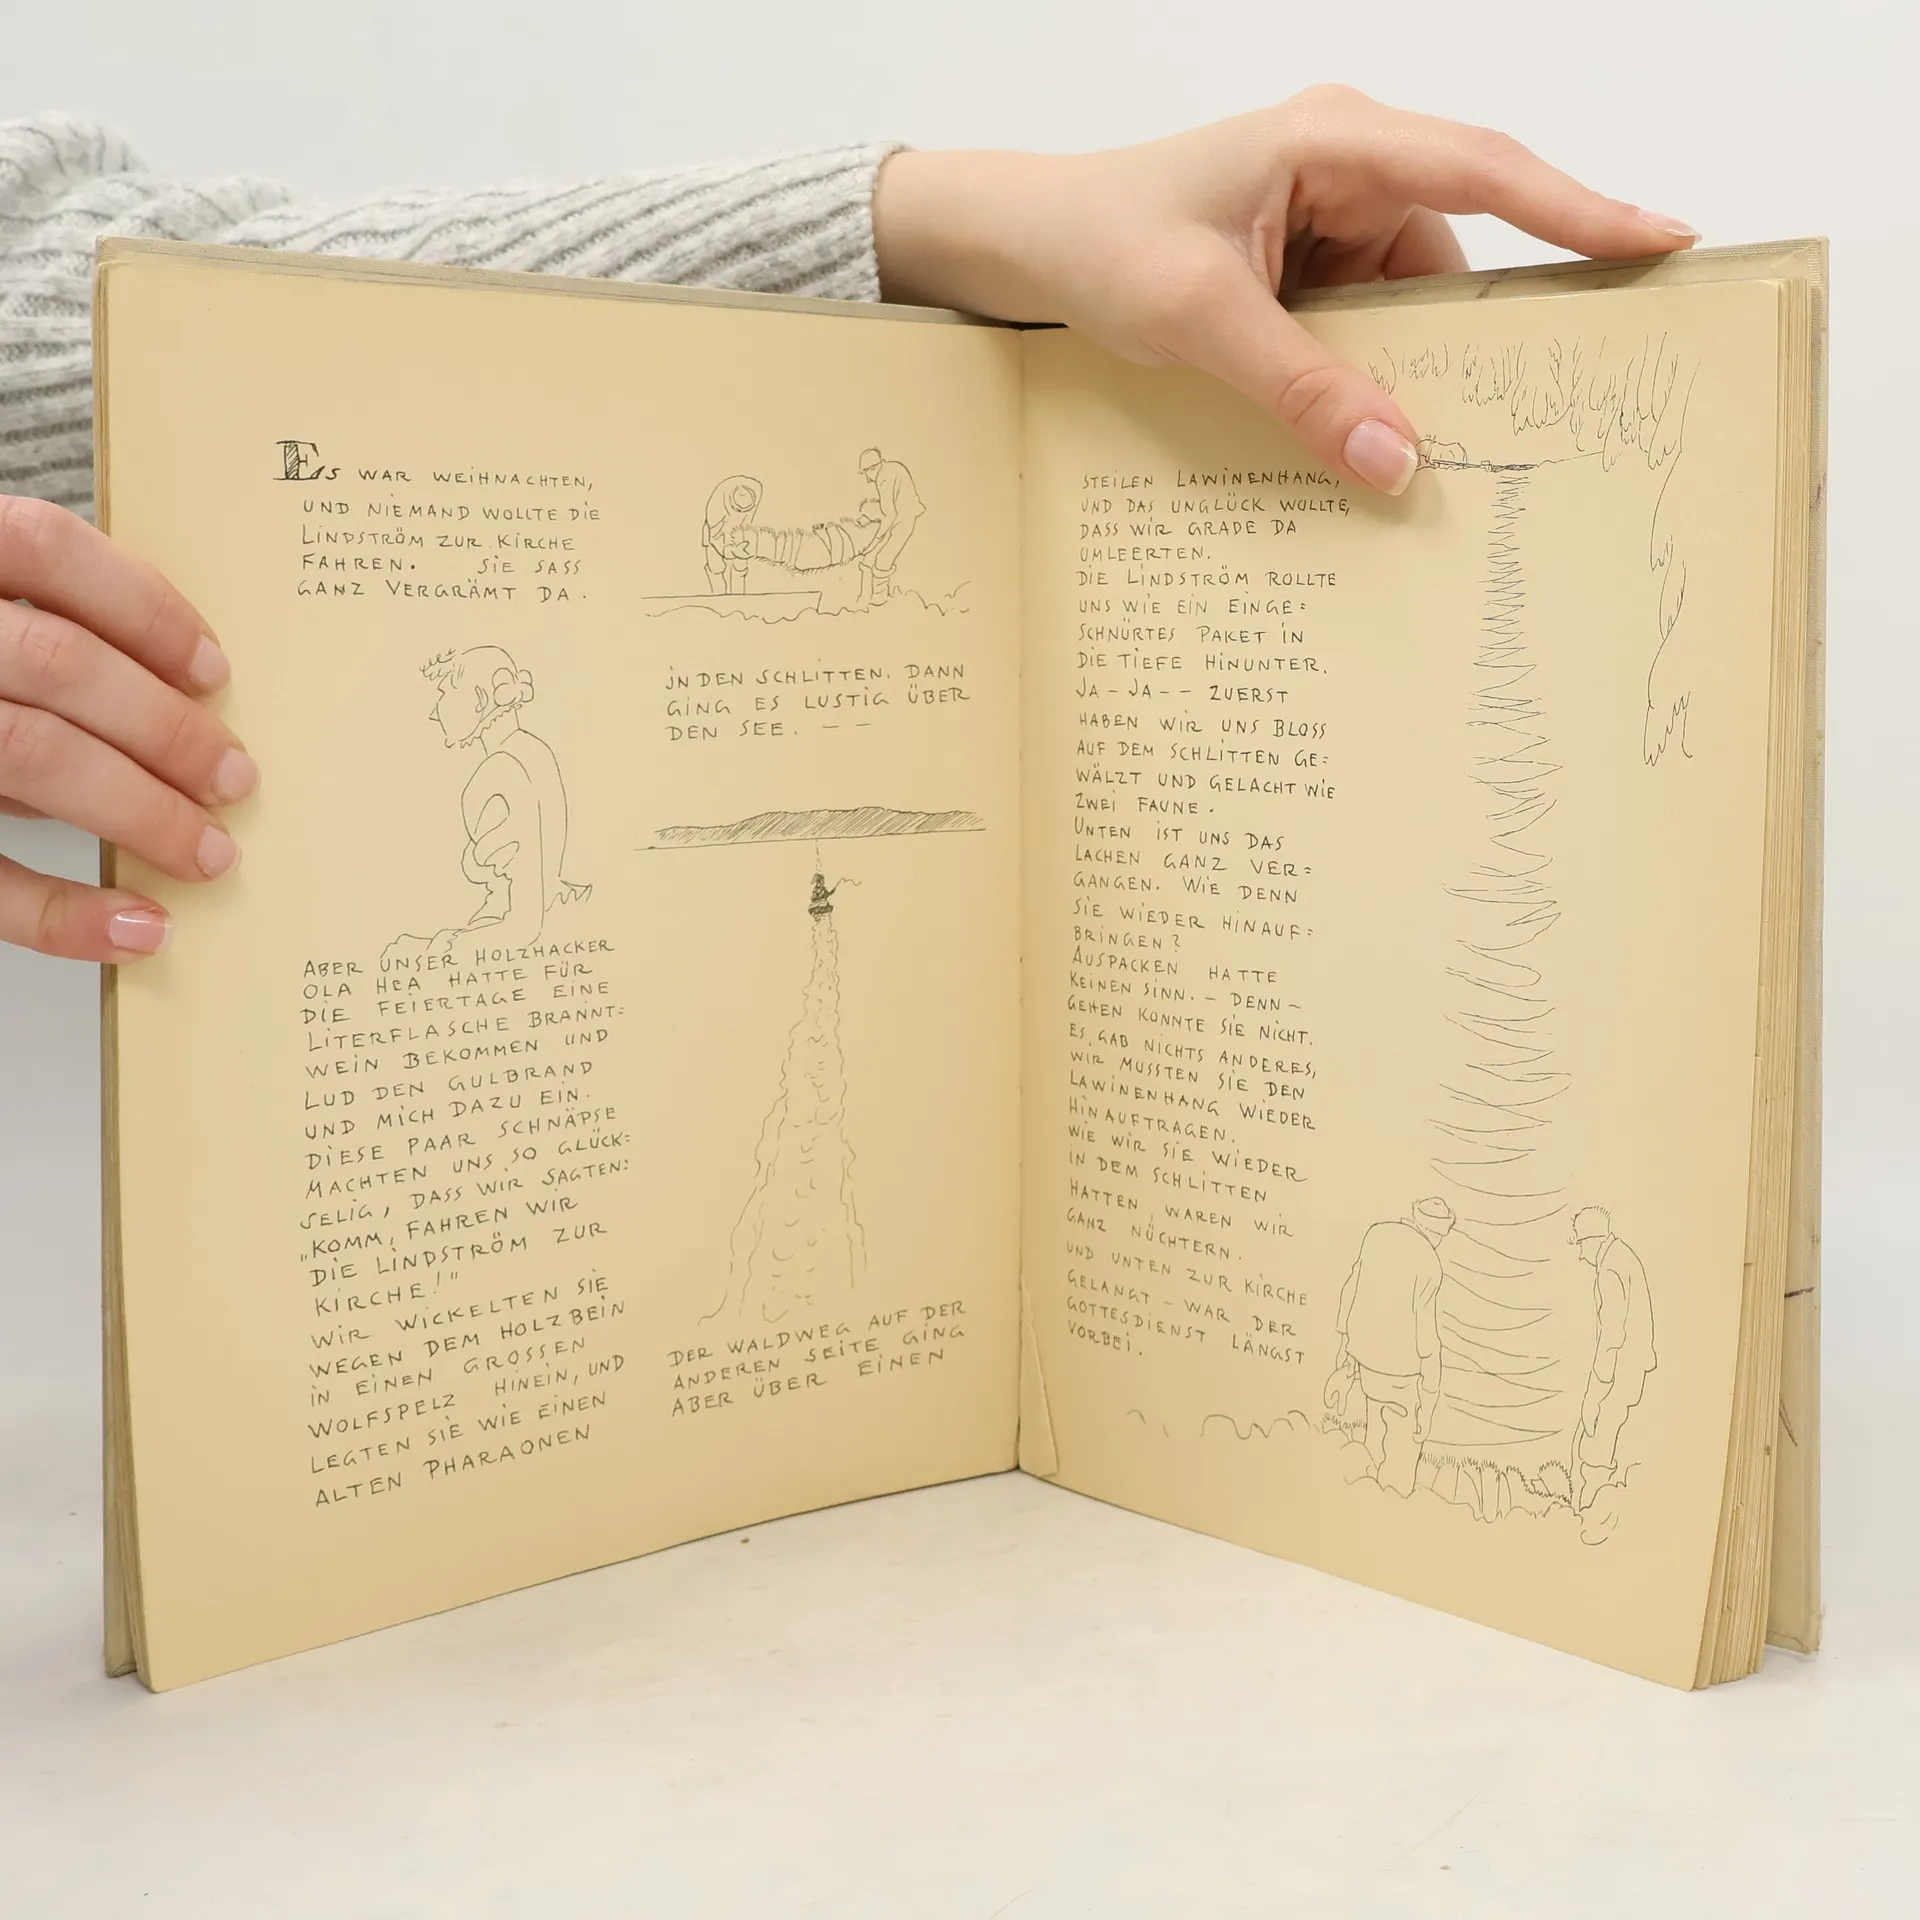 Es WAR WEIHNACHTEN,
UND NIEMAND WOLLTE DIE
LINDSTRÖM ZUR KIRCHE
FAHREN. SIE SASS
GANZ VERGRÄMT DA.
ABER UNSER HOLZHACKER
OLA HEA HATTE FÜR
DIE FEIERTAGE EINE
LITERFLASCHE BRANNT=
WEIN BEKOMMEN UND
LUD DEN GULBRAND
UND MICH DAZU EIN.
DIESE PAAR SCHNÄPSE
MACHTEN UNS SO GLÜCK=
SELIG, DASS WIR SAGTEN:
„KOMM, FAHREN WIR
DIE LINDSTRÖM ZUR
KIRCHE!"
WIR WICKELTEN SIE
WEGEN DEM HOLZBEIN
IN EINEN GROSSEN
WOLFSPELZ HINEIN, UND
LEGTEN SIE WIE EINEN
ALTEN PHARAONEN
IN DEN SCHLITTEN. DANN
GING ES LUSTIG ÜBER
DEN SEE. – –
DER WALDWEG AUF DER
ANDEREN SEITE GING
ABER ÜBER EINEN
STEILEN LAWINENHANG,
UND DAS UNGLÜCK WOLLTE,
DASS WIR GRADE DA
UMLEERTEN.
DIE LINDSTRÖM ROLLTE
UNS WIE EIN EINGE=
SCHNÜRTES PAKET IN
DIE TIEFE HINUNTER.
JA – JA – – ZUERST
HABEN WIR UNS BLOSS
AUF DEM SCHLITTEN GE=
WÄLZT UND GELACHT WIE
ZWEI FAUNE.
UNTEN IST UNS DAS
LACHEN GANZ VER=
GANGEN. WIE DENN
SIE WIEDER HINAUF=
BRINGEN?
AUSPACKEN HATTE
KEINEN SINN. – DENN –
GEHEN KONNTE SIE NICHT.
ES GAB NICHTS ANDERES,
WIR MUSSTEN SIE DEN
LAWINENHANG WIEDER
HINAUFTRAGEN.
WIE WIR SIE WIEDER
IN DEM SCHLITTEN
HATTEN, WAREN WIR
GANZ NÜCHTERN.
UND UNTEN ZUR KIRCHE
GELANGT – WAR DER
GOTTESDIENST LÄNGST
VORBEI.